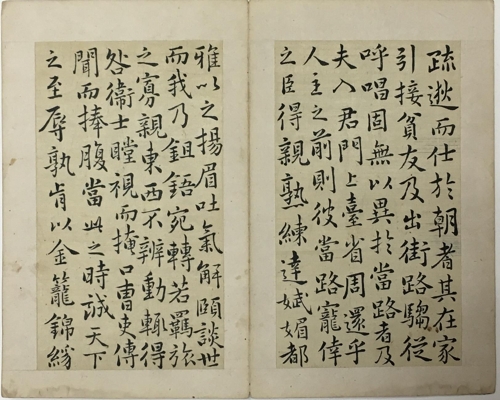 疏逖而仕於朝者其在家
引接貧友及出街路騶從
呼唱固無以異於當路者及
夫入君門上臺省周還乎
人主之前則彼當路寵倖
之臣得親熟練達嫵媚都
雅以之揚眉吐氣解頤談世
而我乃鉏鋙宛轉若羈旅
之寡親東西不辨動輒得
咎衞士瞠視而掩口曹吏傳
聞而捧腹當此之時誠天下
之至辱孰肯以金籠錦絲